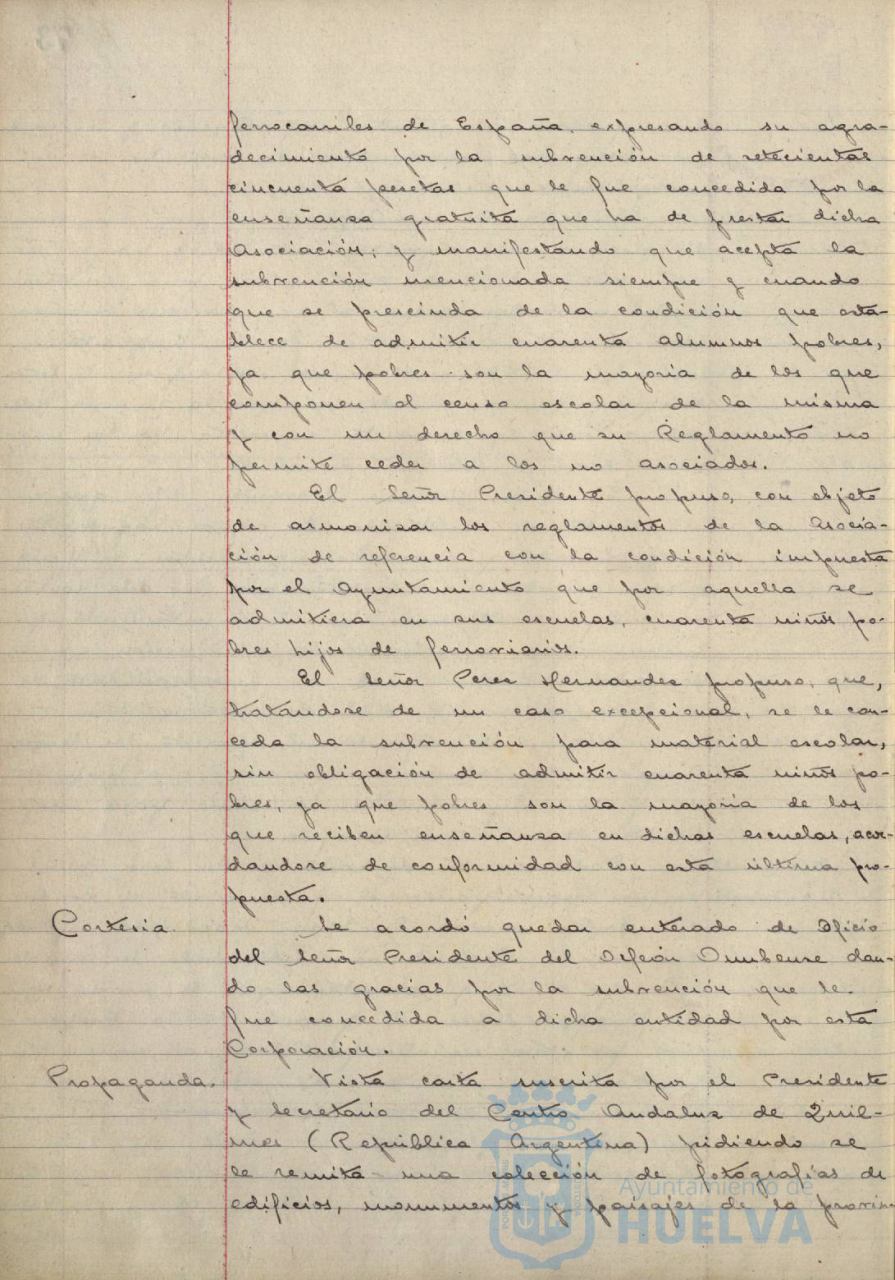 ferrocarriles de España, expresando su agra-
decimiento por la subvención de setecientas
cincuenta pesetas que le fue concedida por la
enseñanza gratuita que ha de prestar dicha
Asociación; y manifestando que acepta la
subvención mencionada siempre y cuando
que se prescinda de la condición que esta-
blece de admitir cuarenta alumnos pobres,
ya que pobres son la mayoría de los que
componen el censo escolar de la misma
y con un derecho que su Reglamento no
permite ceder a los no asociados.
El Señor Presidente propuso, con objeto
de armonizar los reglamentos de la Asocia-
ción de referencia con la condición impuesta
por el Ayuntamiento que por aquella se
admitiera en sus escuelas, cuarenta niños po-
bres hijos de ferroviarios.
El Señor Perez Hernandez propuso, que,
tratándose de un caso excepcional, se le con-
ceda la subvención para material escolar,
sin obligación de admitir cuarenta niños po-
bres, ya que pobres son la mayoría de los
que reciben enseñanza en dichas escuelas, acor-
dandose de conformidad con esta ultima pro-
puesta.
Cortesia. Se acordó quedar enterado de Oficio
del Señor Presidente del Orfeón Onubense dan-
do las gracias por la subvención que le
fue concedida a dicha entidad por esta
Corporación.
Propaganda. Vista carta suscrita por el Presidente
y Secretario del Centro Andaluz de Quil-
mes (República Argentina) pidiendo se
le remita una colección de fotografías de
edificios, monumentos y paisajes de la provin-
Ayuntamiento de
HUELVA